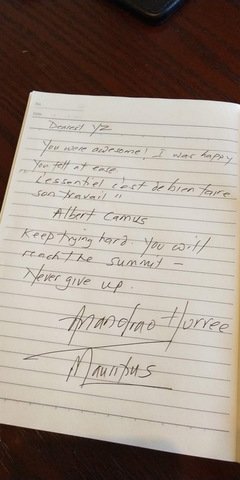 Dearest YZ
You were awesome! I was happy
You felt at ease.
"L'essentiel c'est de bien faire
son travail"
Albert Camus
Keep trying hard. You will
reach the summit –
Never give up.
Anandrao Hurree
Mauritius